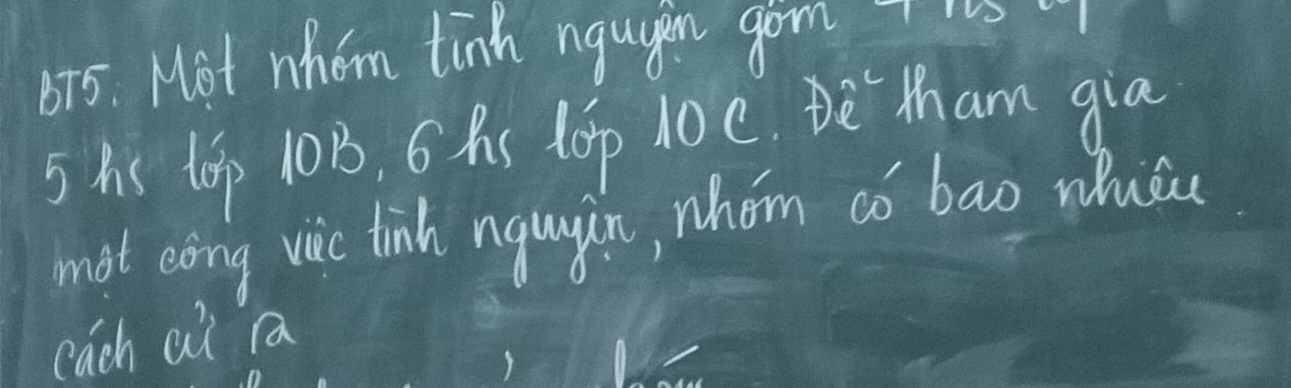 BT5: Một nhóm tình nguyện gồm 4 hs
5 hs lớp 10B, 6 hs lớp 10C. Để tham gia
một công việc tình nguyện, nhóm có bao nhiêu
cách cử ra